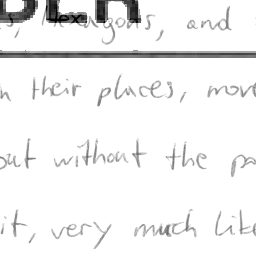 Hexagons, and
their places, move
out without the
it, very much like